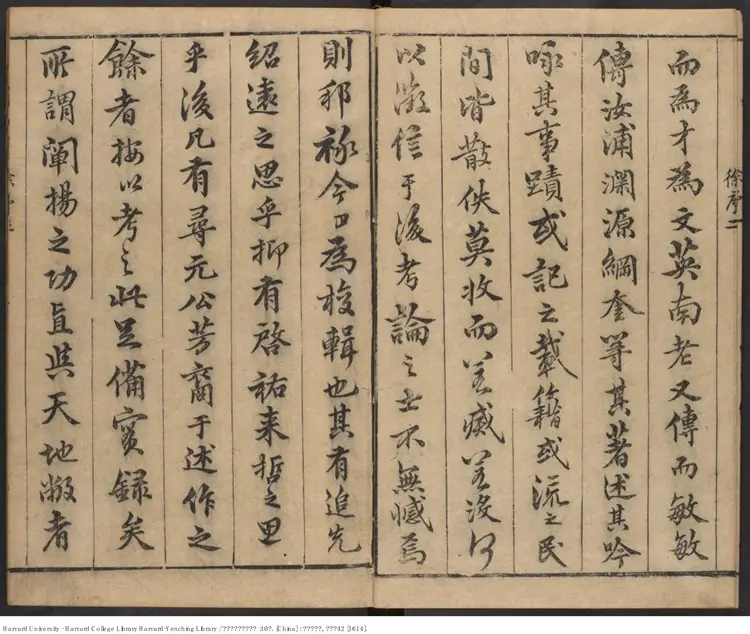 而為才為文英南老又傳而敏敏
傳汝浦瀾源綱奎等其著述其吟
咏其事蹟或記之載籍或流之民
間皆散佚莫收而若威若沒何
以徵信于後考論之士不無憾焉
則邪祿今日為梭輯也其有追先
紹遠之思乎抑有啓祐来哲之思
乎後凡有尋元公芳裔于述作之
餘者按以考之此足備實錄矣
所謂闡揚之功直與天地敝者
徐序二
Harvard University - Harvard College Library Harvard-Yenching Library / ????????? :10?. [China] : ?????, ???42 [1614].